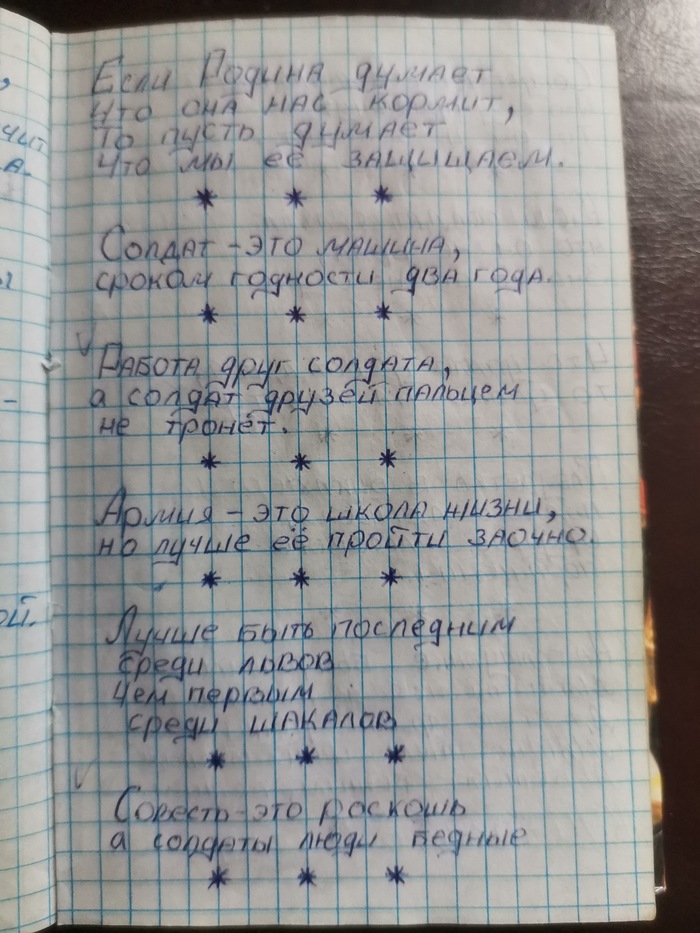 Если Родина думает
что она нас кормит,
то пусть думает
что мы её защищаем.
* * *
Солдат - это машина,
сроком годности два года.
* * *
Работа друг солдата,
а солдат друзей пальцем
не тронет.
* * *
Армия - это школа жизни,
но лучше её пройти заочно.
* * *
Лучше быть последним
среди львов
чем первым
среди шакалов
* * *
Совесть-это роскошь
а солдаты люди бедные
* * *